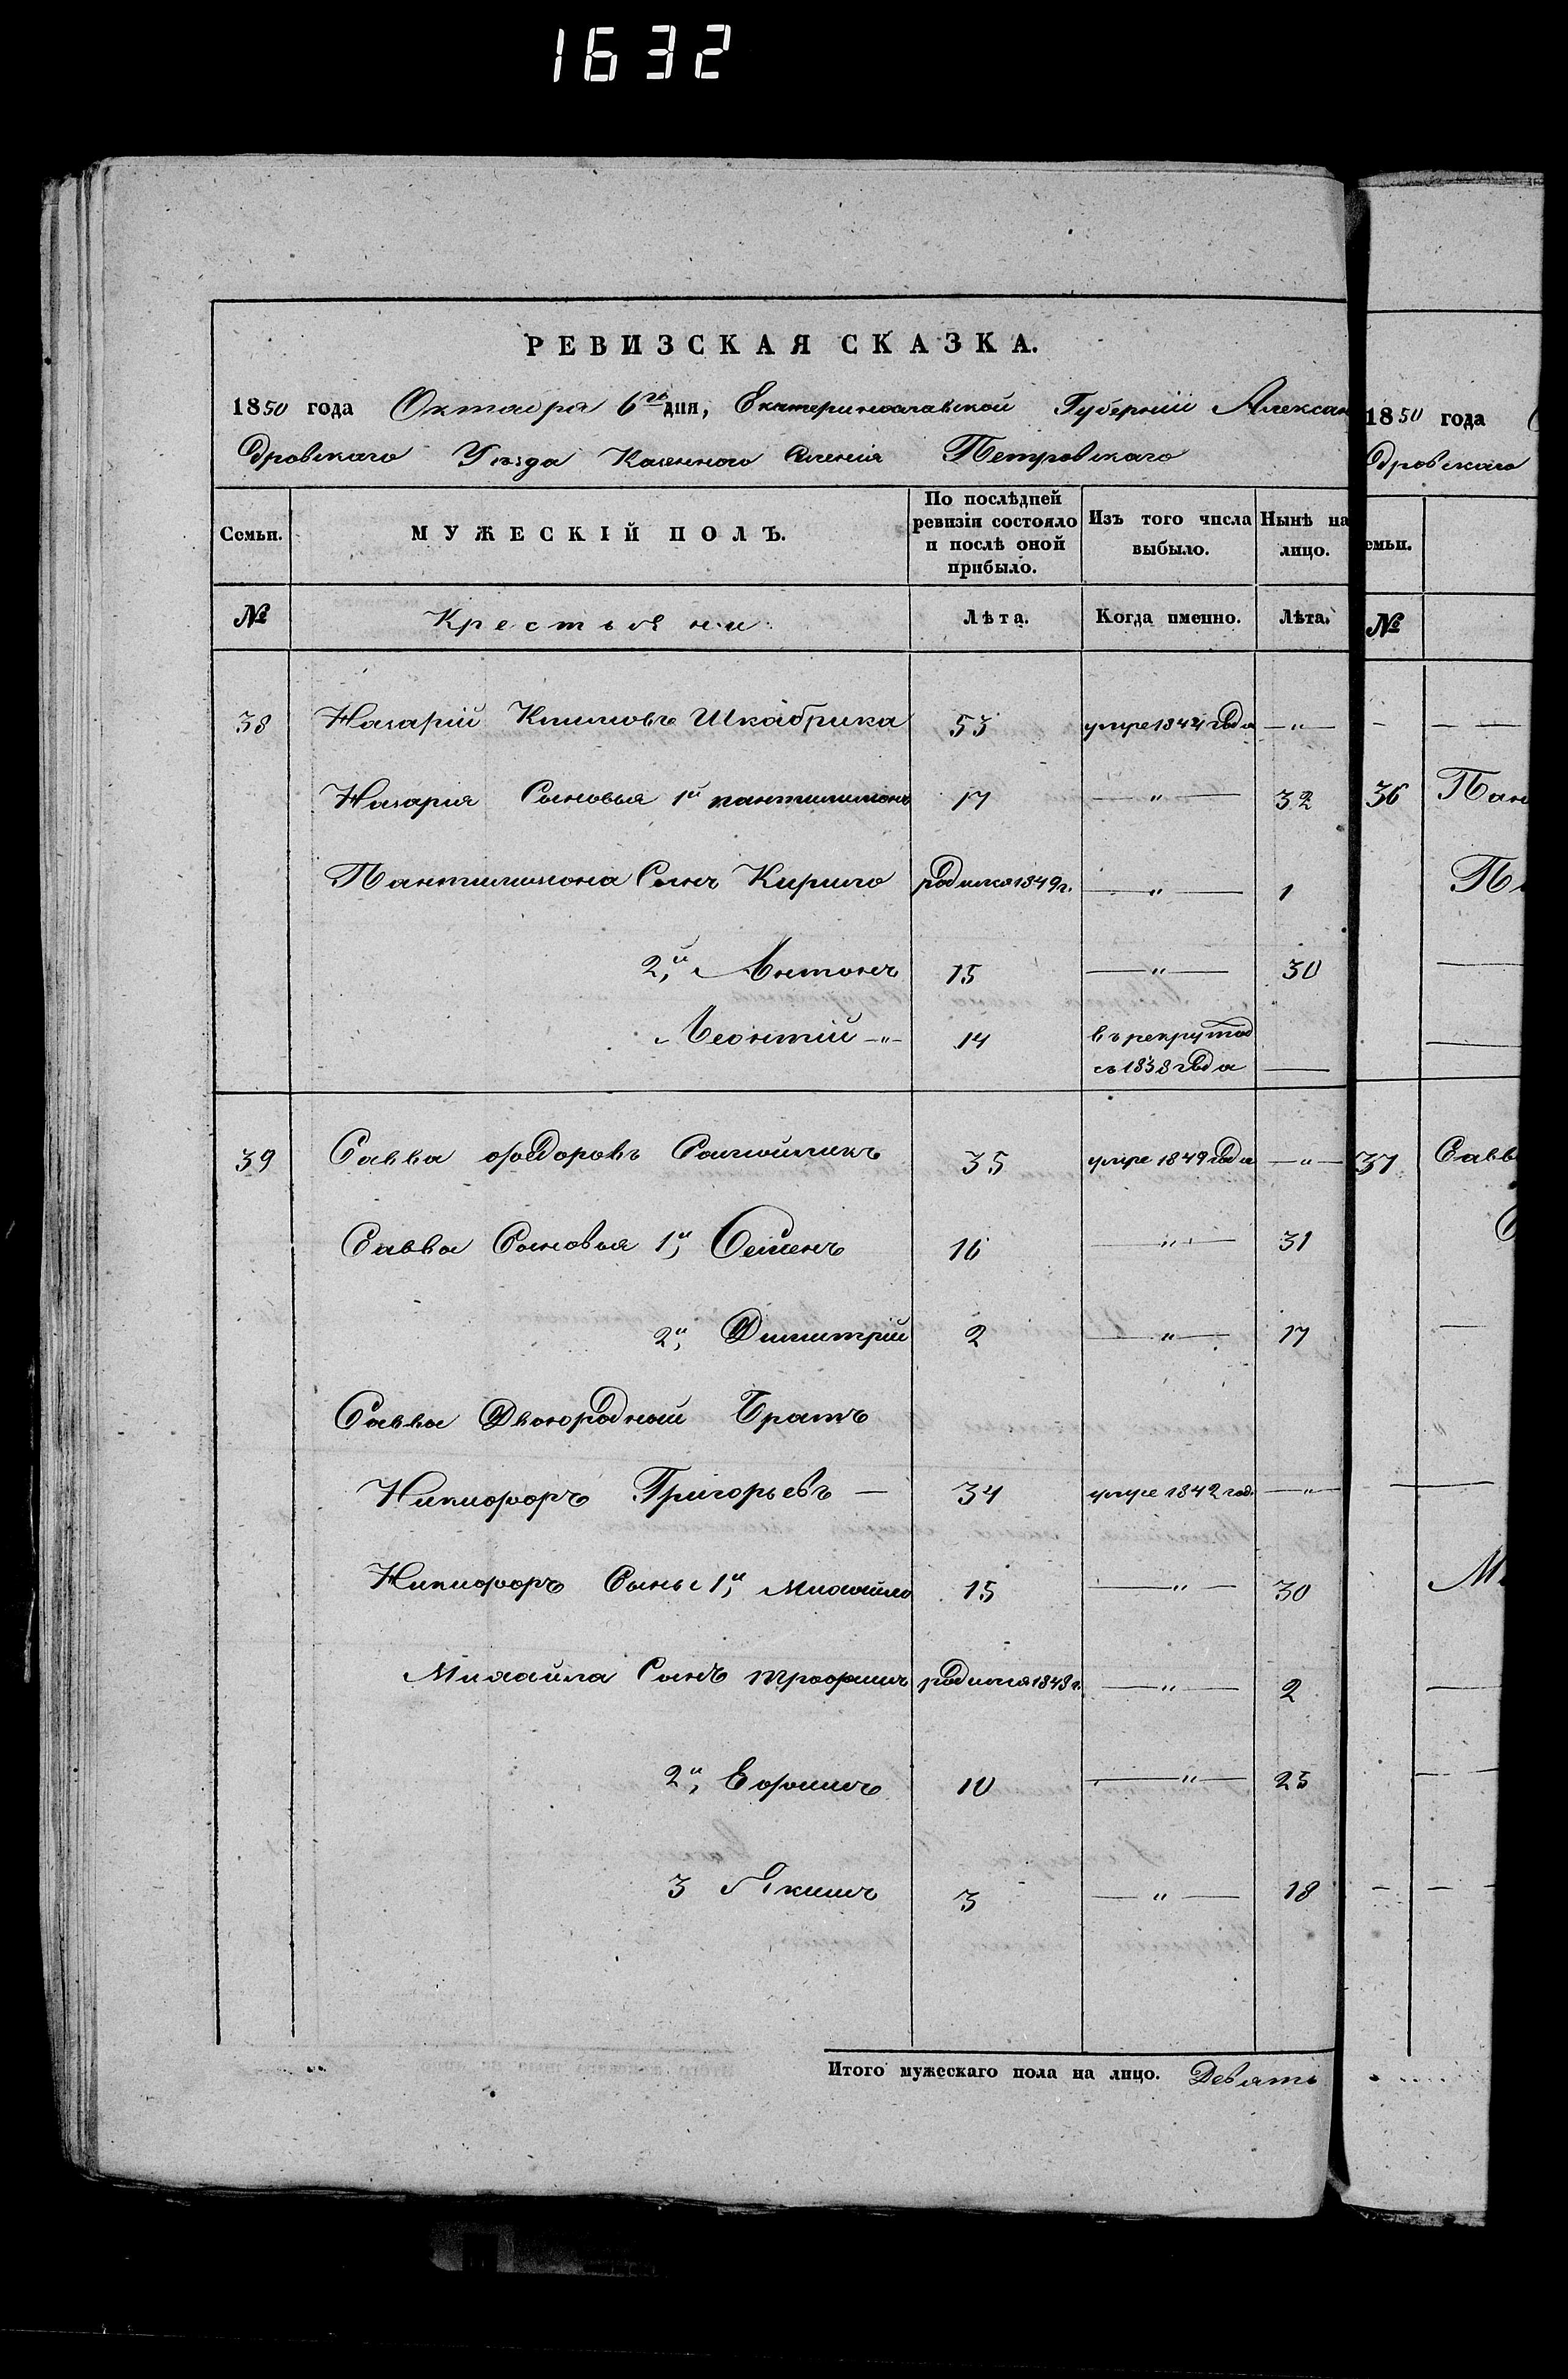 1632
РЕВИЗСКАЯ СКАЗКА.
1850 года Октября 6го дня, Екатеринославской Губерніи Алексан
дровскаго Уѣзда Казеннаго Селенія Петровскаго
Семьи. МУЖЕСКІЙ ПОЛЪ. По послѣдней ревизіи состояло и послѣ оной прибыло. Изъ того числа выбыло. Нынѣ на лицо.
№ Крестьяни Лѣта. Когда именно. Лѣта.
38 Назарій Климовъ Шкабрика 53 умре 1844 года — " —
Назарія Сыновья 1й пантилимонъ 17 — " — 32
Пантилимона Сынъ Кирило родился 1849 г. — " — 1
2й Антонъ 15 — " — 30
Леонтій — " — 14 въ рекрутах
съ 1838 года —
39 Савва Фѣдоровъ 35 умре 1849 года — " —
Савва Сыновья 1й Семенъ 16 — " — 31
2й Димитрій 2 — " — 17
Савва Двоюродный Братъ
Никифоръ Григорьевъ — 34 умре 1842 год. — " —
Никифоръ Сыны 1й Михайло 15 — " — 30
Михайла Сынъ Трофимъ родился 1848 г. — " — 2
2й Ефимъ 10 — " — 25
3 Якимъ 3 — " — 18
Итого мужескаго пола на лицо. Девять
1850 года
дровскаго
емьи.
№
36 Пан
37 Савв